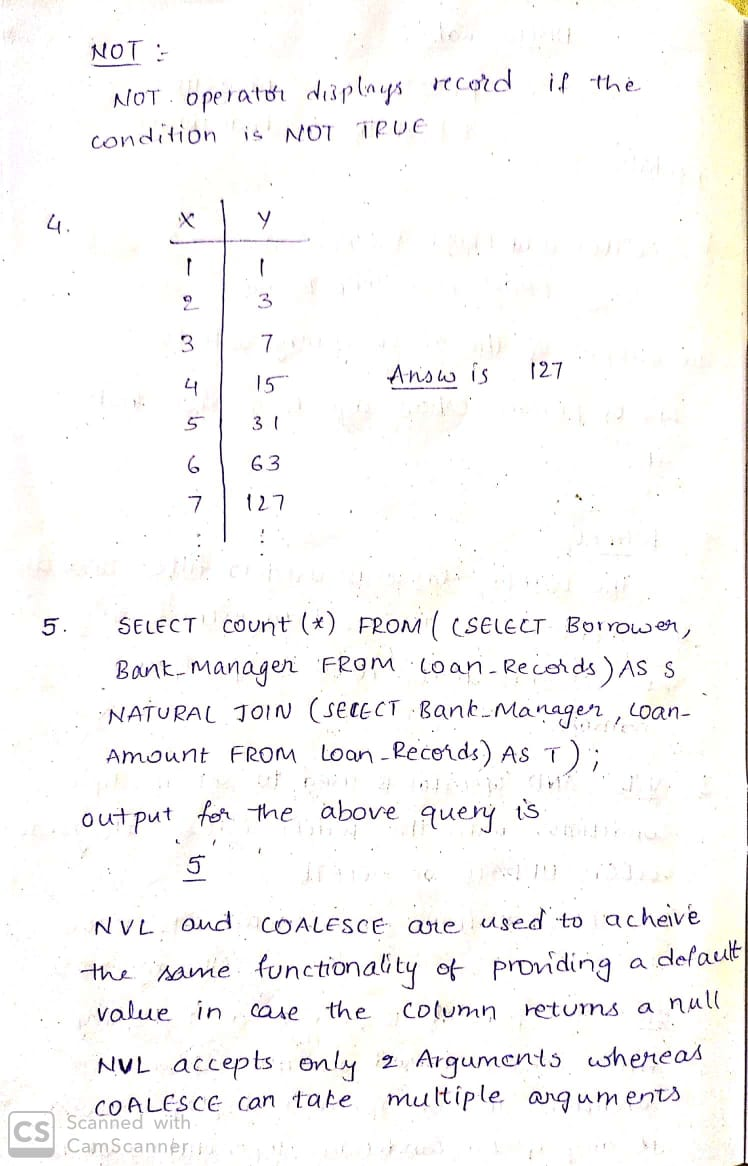 NOT :-
NOT operator displays record if the
condition is NOT TRUE
4.
X Y
1 1
2 3
3 7
4 15
5 31
6 63
7 127
Answ is 127
5. SELECT count (*) FROM ( (SELECT Borrower,
Bank-Manager FROM Loan-Records) AS S
NATURAL JOIN (SELECT Bank-Manager, Loan-
Amount FROM Loan-Records) AS T );
output for the above query is
5
NVL and COALESCE are used to acheive
the same functionality of providing a default
value in case the column returns a null
NVL accepts only 2 Arguments whereas
COALESCE can take multiple arguments
CS Scanned with
CamScanner